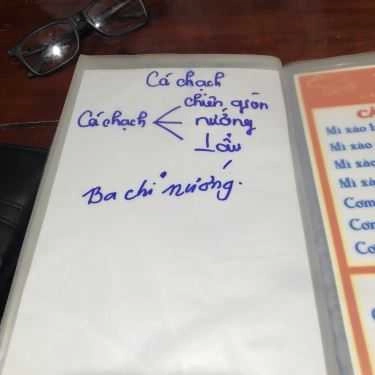 Cá chạch
Cá chạch
chiên giòn
nướng
Lẩu
Ba chỉ nướng.
Mì xào
Mì xào
Mì xào
Mì xà
Cơm
Cơ
Cơ